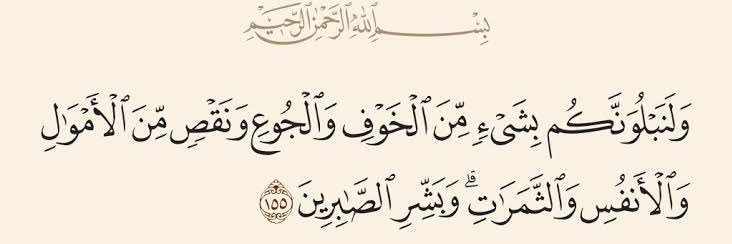 بِسْمِ اللَّهِ الرَّحْمَٰنِ الرَّحِيمِ
وَلَنَبْلُوَنَّكُم بِشَىْءٍ مِّنَ ٱلْخَوْفِ وَٱلْجُوعِ وَنَقْصٍ مِّنَ ٱلْأَمْوَٰلِ
وَٱلْأَنفُسِ وَٱلثَّمَرَٰتِ ۗ وَبَشِّرِ ٱلصَّٰبِرِينَ ١٥٥